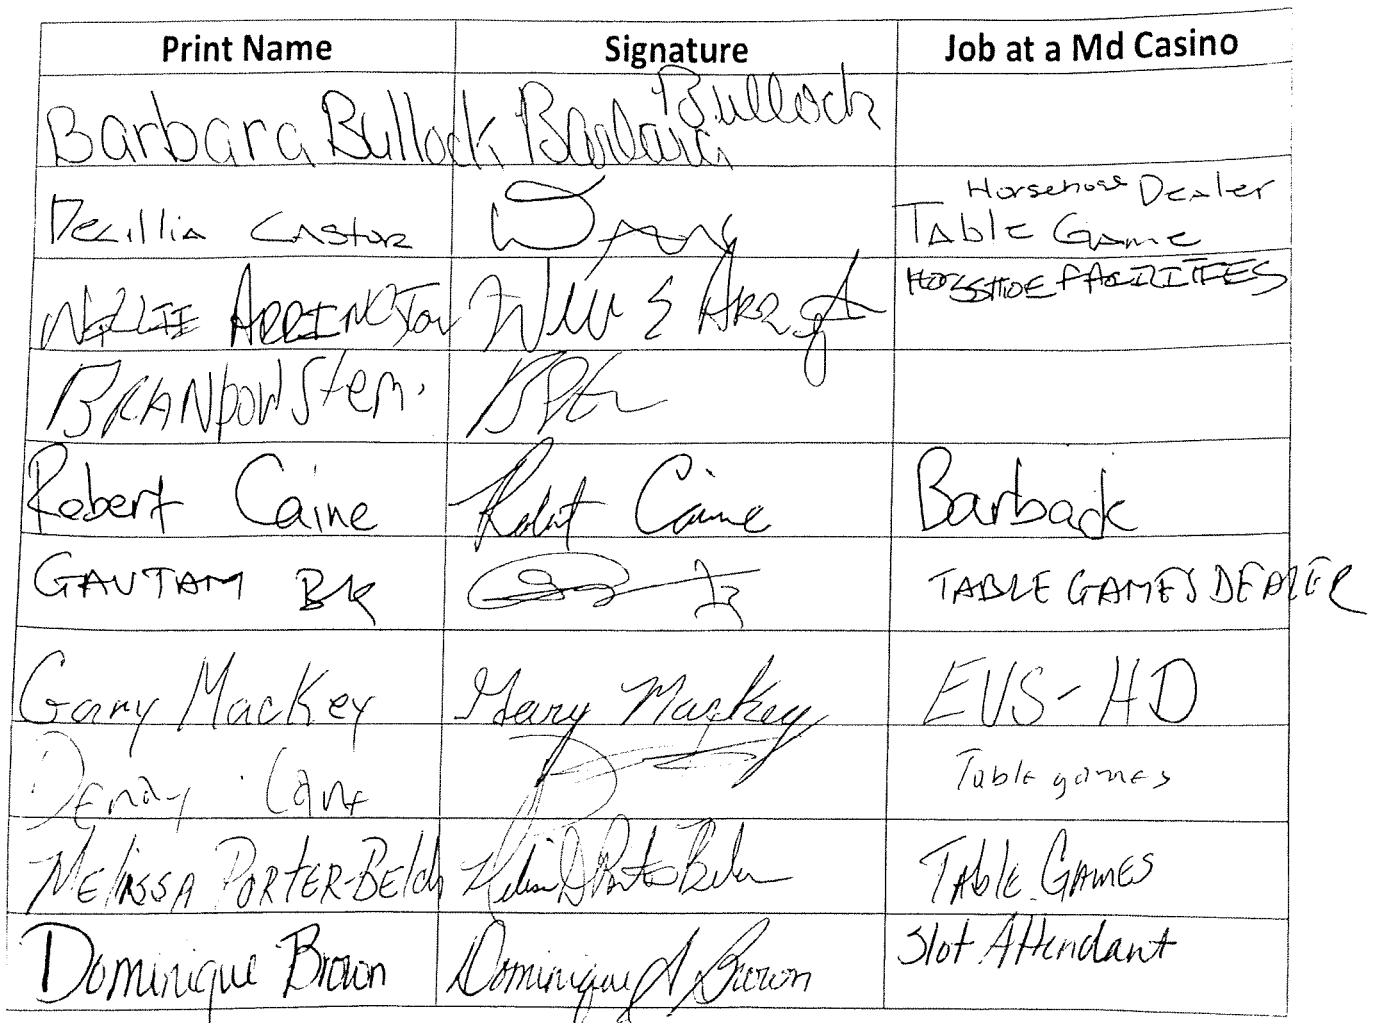 Print Name Signature Job at a Md Casino
Barbara Bullock Barbara Bullock
Decillia Castor Horseshoe Dealer
Table Game
Willie Arrington Will E HORSSHOE FACILITIES
BRANDON Stem.
Robert Caine Robert Caine Barback
GAUTAM BK TABLE GAMES DEALER
Gary Mackey Gary Mackey EVS-HD
Table games
Melissa Porter-Belch Table Games
Dominique Brown Dominique A Brown Slot Attendant